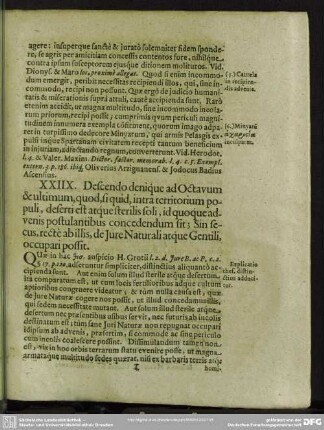 agere: insuperque sanctè & jurató solemniter fidem sponde-
re, se agris per amicitiam concessis contentos fore, nihilque
contra ipsum susceptorem ejusque ditionem molituros. Vid.
Dionys. & Maro loc. proximè allegat. Quod si enim incommo-
dum emergit, peribit necessitas recipiendi illos, qui, sine in-
commodo, recipi non possunt. Quæ ergò de judicio humani-
tatis & miserationis supra attuli, cautè accipienda sunt. Rarò
etenim accidit, ut magna multitudo, sine incommodo incola-
rum priorum, recipi possit; cum primis qvum periculi magni-
tudinem innumera exempla cõfirment, quorum imago adpa-
ret in turpissimo dedecore Minyarum, qui armis Pelasgis ex-
pulsi inque Spartanam civitatem recepti tantum beneficium
in injuriam, adfectando regnum, converterunt. Vid. Herodot.
l. 4. & Valer. Maxim. Dictor. factor. memorab. l. 4. c. 5. Exempl.
extern. 3. p. 186. ibiq; Oliverius Arzignanens. & Jodocus Badius
Ascensius.
XXIIX. Descendo denique ad Octavum
& ultimum, quod, si quid, intra territorium po-
puli, deserti est atque sterilis soli, id quoque ad-
venis postulantibus concedendum sit; Sin se-
cus, rectè ab illis, de Jure Naturali atque Gentili,
occupari possit.
Quæ in hac ῥήσ. auspicio H. Grotii l. 2. d. Jure B. ac P. c. 2.
§. 17. p. 120. adseruntur simpliciter, distinctius aliquantò ac-
cipienda sunt. Aut enim solum illud sterile atque desertum
ita comparatum est, ut cum sociis fertilioribus adque cultum
aptioribus congruere videatur, & tùm nulla causa est, quæ
de Jure Naturæ cogere nos possit, ut illud concedamus illis,
qui sedem necessitate mutant. Aut solum illud sterile atque
desertum nec præsentibus usibus servit, nec futuris ab incolis
destinatum est; tùm sanè Juri Naturæ non repugnat occupari
id ipsum ab advenis, præsertim, si commodè ac sine periculo
cum incolis coalescere possint. Dissimulandum tamen non
est, vix in hoc orbis terrarum statu evenire posse, ut magna
armataque multitudo sedes quærat, nisi ex barbaris terris
homi-
(5.) Cautela
in recipien-
dis advenis.
(6.) Minyarũ
Explicatio
thes. distin-
ctim addux-
tur.